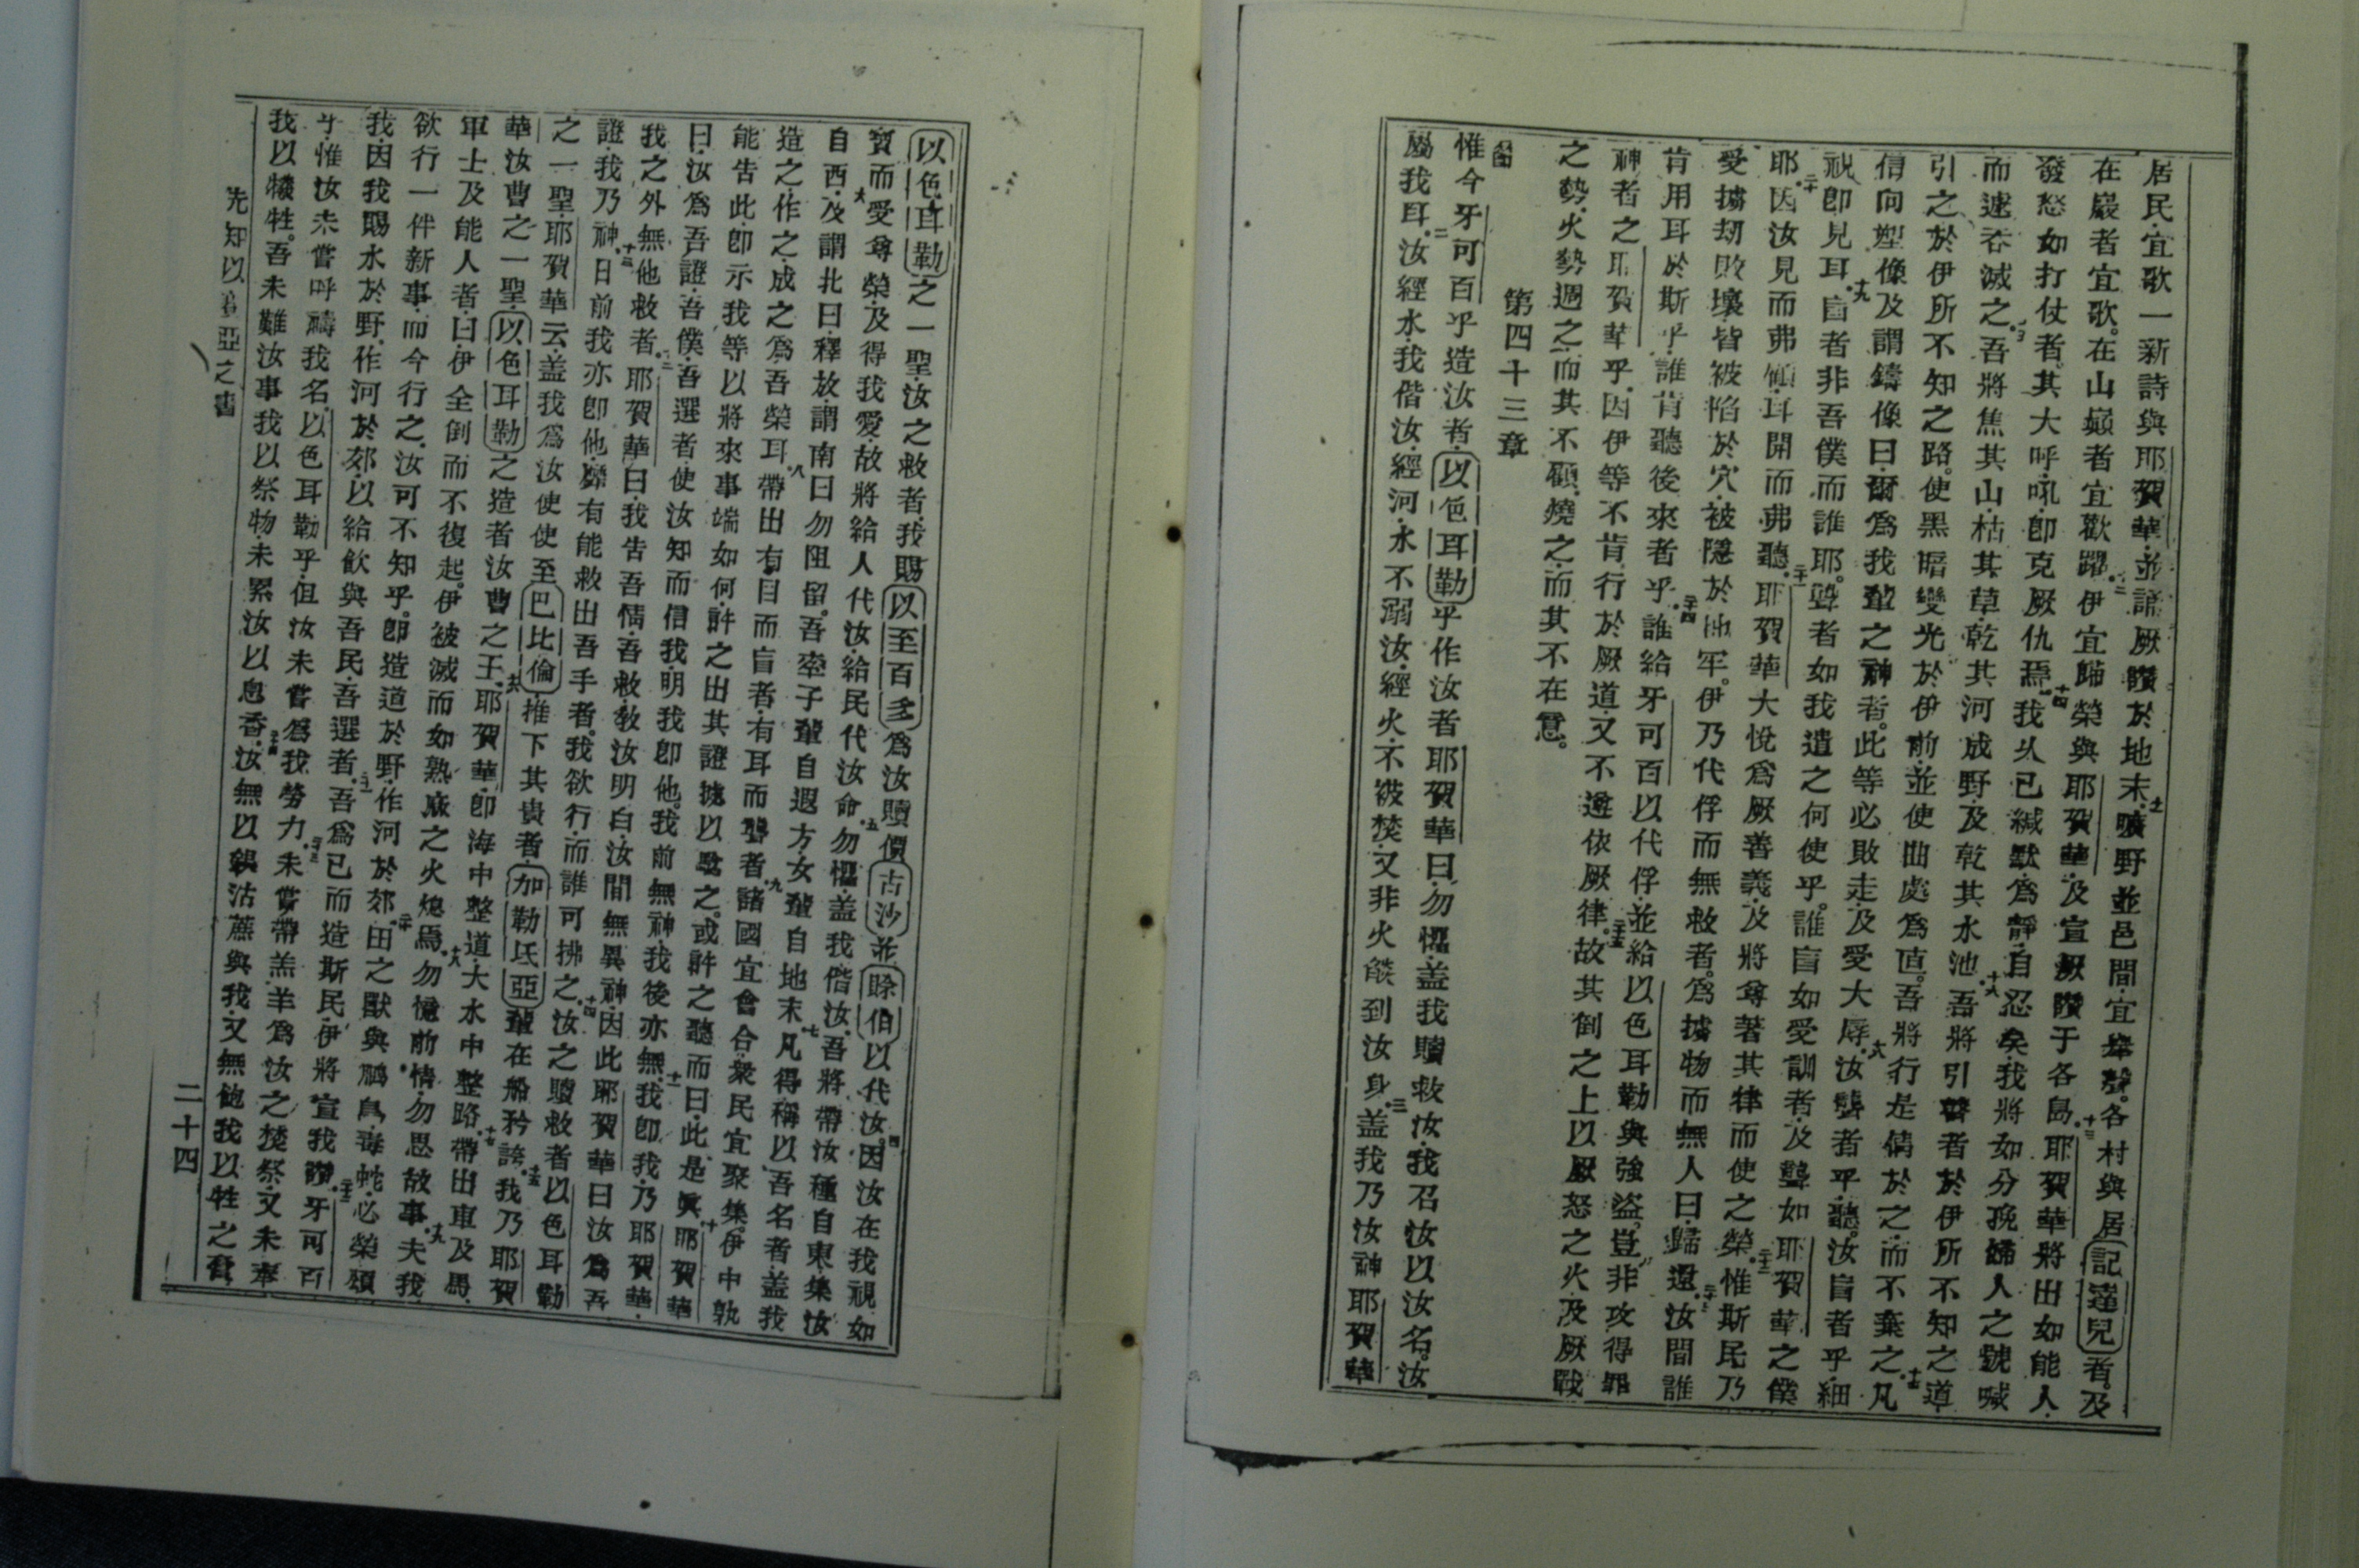 居民宜歌一新詩與耶賀華並誦厥讚於地末十一曠野並邑間宜舉聲各村與居記達兒者及
在巖者宜歌在山巔者宜歡躍十二伊宜歸榮與耶賀華及宣厥讚于各島十三耶賀華將出如能人
發怒如打仗者其大呼吼即克厥仇焉十四我久已緘默為靜自忍矣我將如分娩婦人之號喊
而遽吞滅之吾將焦其山枯其草乾其河成野及乾其水池十六吾將引瞽者於伊所不知之道
引之於伊所不知之路使黑暗變光於伊前並使曲處為直吾將行是情於之而不棄之十七凡
信向塑像及謂鑄像曰爾為我輩之神者此等必敗走及受大辱十八汝聾者乎聽汝盲者乎細
視即見耳十九盲者非吾僕而誰耶聾者如我遣之何使乎誰盲如受訓者及聾如耶賀華之僕
耶二十因汝見而弗傾耳開而弗聽二十一耶賀華大悅為厥善義及將尊著其律而使之榮二十二惟斯民乃
受擄刼敗壞皆被陷於穴被隱於牢伊乃代俘而無救者為擄物而無人曰歸還二十三汝間誰
肯用耳於斯乎誰肯聽後來者乎二十四誰給牙可百以代俘並給以色耳勒與強盜豈非攻得罪
神者之耶賀華乎因伊等不肯行於厥道又不遵依厥律二十五故其倒之上以厥怒之火及厥戰
之勢火勢週之而其不顧燒之而其不在意
第四十三章
惟今牙可百乎造汝者以色耳勒乎作汝者耶賀華曰勿懼蓋我贖救汝我召汝以汝名汝
屬我耳二汝經水我偕汝經河水不溺汝經火不被焚又非火燄到汝身三蓋我乃汝神耶賀華
以色耳勒之一聖汝之救者我賜以至百多為汝贖價古沙並除伯以代汝四因汝在我視如
寶而受尊榮及得我愛故將給人代汝給民代汝命五勿懼蓋我偕汝吾將帶汝種自東集汝
自西六及謂北曰釋放謂南曰勿阻留吾牽子輩自遐方女輩自地末七凡得稱以吾名者蓋我
造之作之成之為吾榮耳八帶出有目而盲者有耳而聾者九諸國宜會合眾民宜聚集伊中孰
能告此即示我等以將來事端如何許之出其證據以驗之或許之聽而曰此是真十耶賀華
曰汝為吾證吾僕吾選者使汝知而信我明我即他我前無神我後亦無十一我即我乃耶賀華
我之外無他救者十二耶賀華曰我告吾情吾救教汝明白汝間無異神因此耶賀華曰汝為吾
證我乃神十三日前我亦即他縻有能救出吾手者我欲行而誰可拂之十四汝之贖救者以色耳勒
之一聖耶賀華云蓋我為汝使使至巴比倫推下其貴者加勒氐亞輩在船矜誇十五我乃耶賀
華汝曹之一聖以色耳勒之造者汝曹之王十六耶賀華即海中整道大水中整路十七帶出車及馬
軍士及能人者曰伊全倒而不復起伊被滅而如熟麻之火熄焉十八勿憶前情勿思故事十九夫我
欲行一件新事而今行之汝可不知乎即造道於野作河於郊二十田之獸與鵰鳥毒蛇必榮頌
我因我賜水於野作河於郊以給飲與吾民吾選者二十一吾為己而造斯民伊將宣我讚二十二牙可百
乎惟汝未嘗呼禱我名以色耳勒乎但汝未嘗為我勞力二十三未嘗帶羔羊為汝之焚祭又未奉
我以犧牲吾未難汝事我以祭物未累汝以息香二十四汝無以銀沽蔗與我又無飽我以牲之膏
先知以賽亞之書
二十四